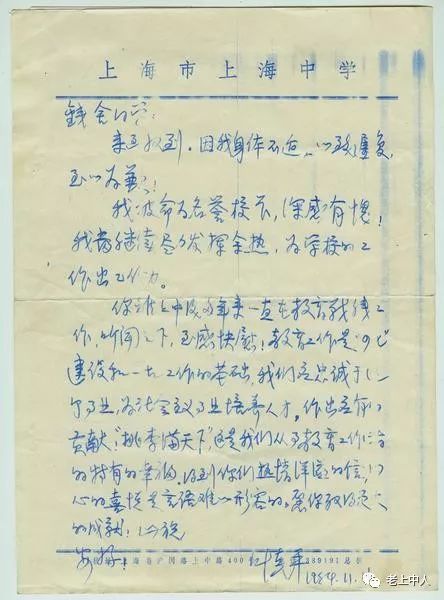 上海市上海中学
来函收到，因我身体不适，以致迟复，
至以为歉！
我被命为名誉校长，深感有愧！
我当继续尽力发挥余热，为学校的工
作出
你 上中 年来一直在教育战线工
作，听闻之下，至感快慰！教育工作是四化
建设和一切工作的基础，我们应忠诚于
，为社会主义事业培养人才，作出应有的
贡献！"桃李满天下"，这是我们从事教育工作者
的特有的幸福。收到你们热情洋溢的信，
心的喜悦是言语难以形容的。愿你取得更大
的成就！此祝
安好！
上中路400 389191
1984.11.
老上中人